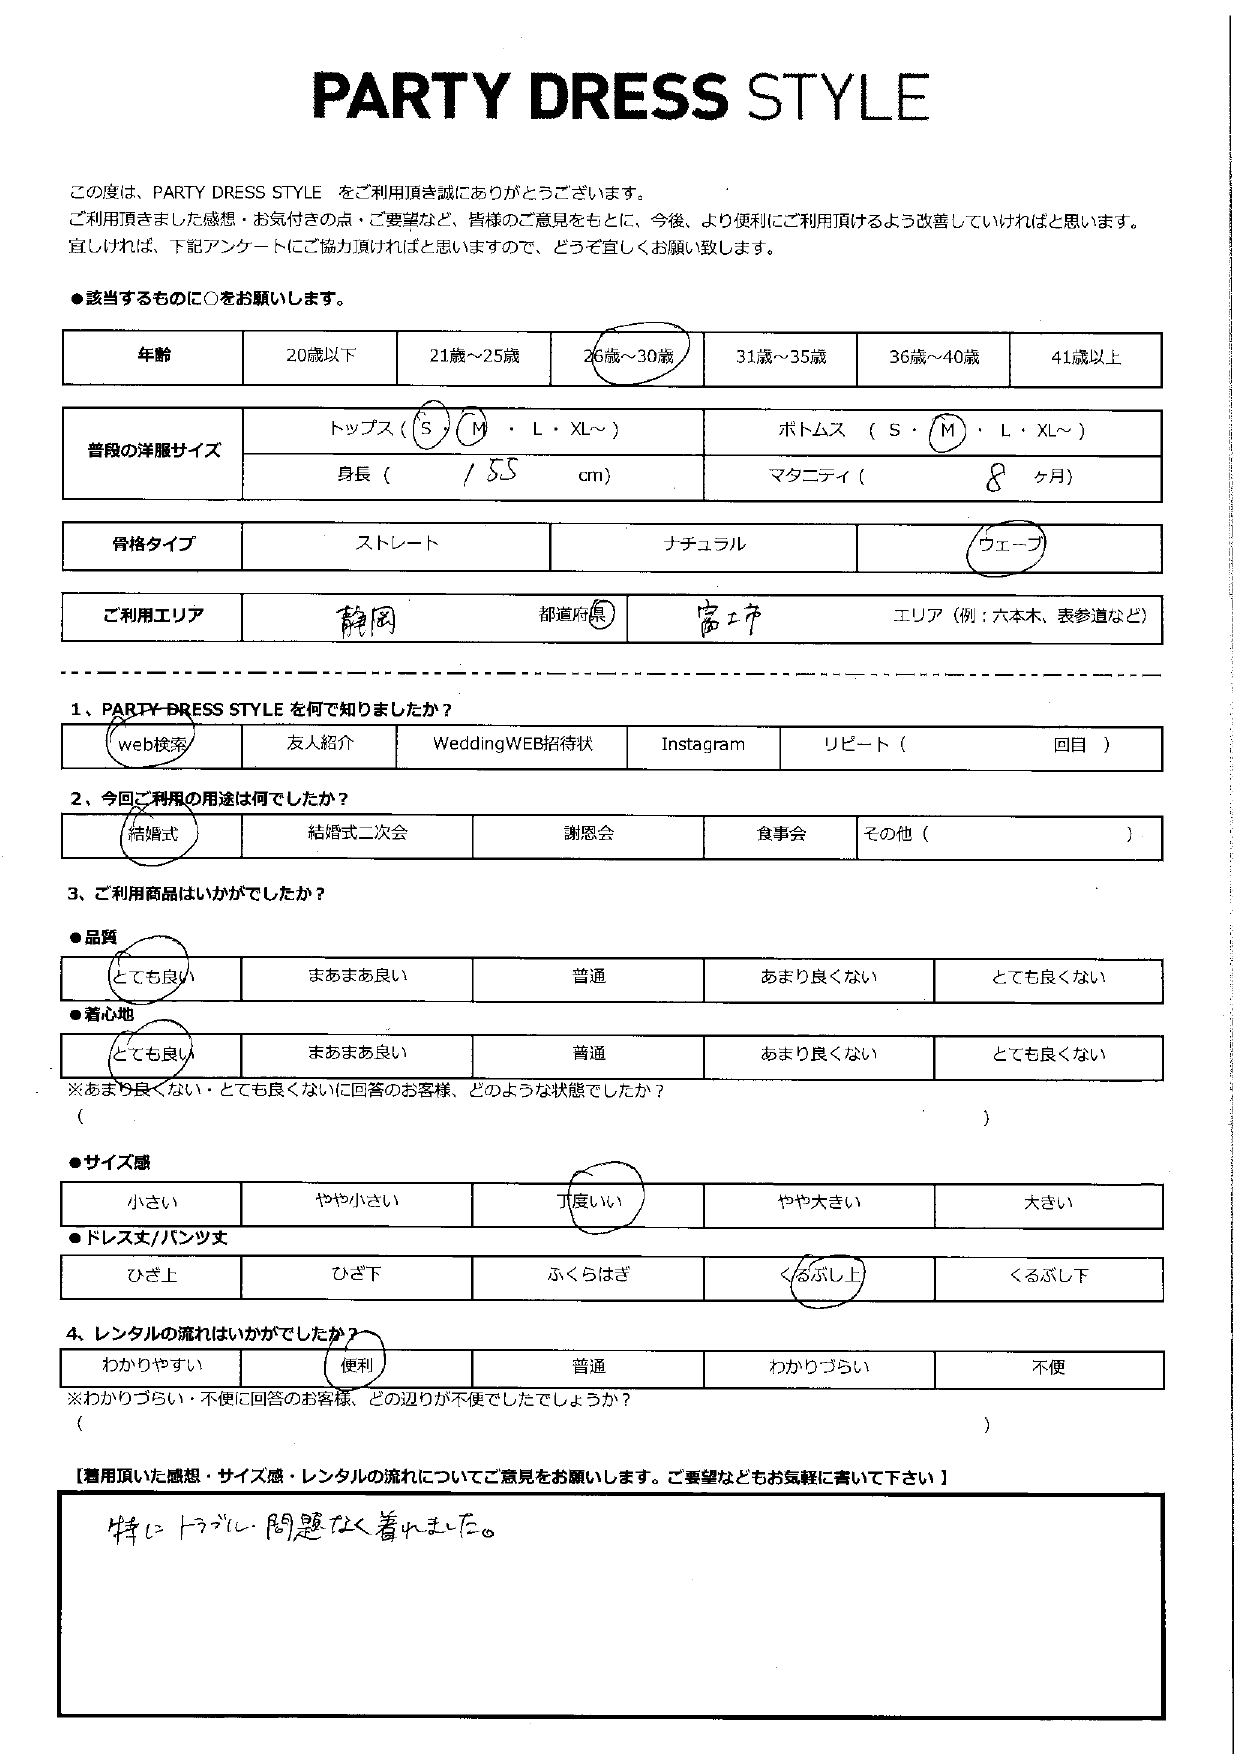 PARTY DRESS STYLE
この度は、PARTY DRESS STYLE をご利用頂き誠にありがとうございます。
ご利用頂きました感想・お気付きの点・ご要望など、皆様のご意見をもとに、今後、より便利にご利用頂けるよう改善していければと思います。
宜しければ、下記アンケートにご協力頂ければと思いますので、どうぞ宜しくお願い致します。
●該当するものに○をお願いします。
年齢 20歳以下 21歳～25歳 26歳～30歳 31歳～35歳 36歳～40歳 41歳以上
普段の洋服サイズ
トップス ( S ・ M ・ L ・ XL～ ) ボトムス ( S ・ M ・ L ・ XL～ )
身長 ( 155 cm) マタニティ ( 8 ヶ月)
骨格タイプ ストレート ナチュラル ウェーブ
ご利用エリア 静岡 都道府県 富士市 エリア（例：六本木、表参道など）
1、PARTY DRESS STYLE を何で知りましたか？
web検索 友人紹介 WeddingWEB招待状 Instagram リピート ( 回目 )
2、今回ご利用の用途は何でしたか？
結婚式 結婚式二次会 謝恩会 食事会 その他 ( )
3、ご利用商品はいかがでしたか？
●品質
とても良い まあまあ良い 普通 あまり良くない とても良くない
●着心地
とても良い まあまあ良い 普通 あまり良くない とても良くない
※あまり良くない・とても良くないに回答のお客様、どのような状態でしたか？
( )
●サイズ感
小さい やや小さい 丁度いい やや大きい 大きい
●ドレス丈/パンツ丈
ひざ上 ひざ下 ふくらはぎ くるぶし上 くるぶし下
4、レンタルの流れはいかがでしたか？
わかりやすい 便利 普通 わかりづらい 不便
※わかりづらい・不便に回答のお客様、どの辺りが不便でしたでしょうか？
( )
【着用頂いた感想・サイズ感・レンタルの流れについてご意見をお願いします。ご要望などもお気軽に書いて下さい 】
特に トラブル・問題なく着れました。